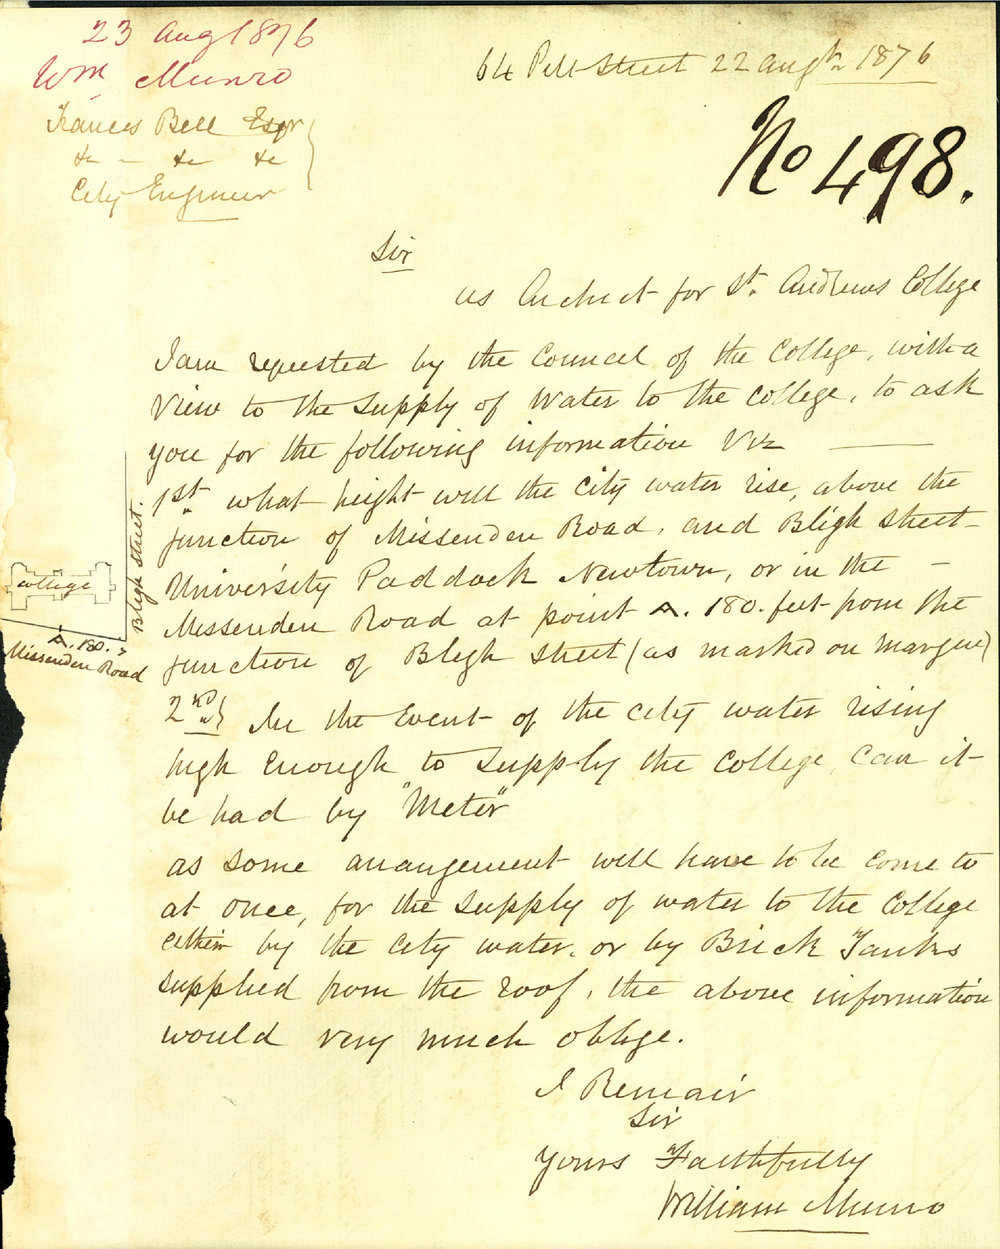 23 Aug 1876
Wm Munro
64 Pitt Street 22 Augt 1876
Frances Bell Esqr
&c - &c &c
City Engineer
No 498.
Sir
as Architect for St. Andrews College
I am requested by the Council of the College, with a
View to the Supply of Water to the College, to ask
you for the following information Viz
1st. what height will the City water rise, above the
junction of Missenden Road, and Bligh Street
University Paddock Newtown, or in the
Missenden Road at point A. 180. feet from the
junction of Bligh Street (as marked on margin)
2nd In the Event of the City water rising
high Enough to Supply the College, Can it
be had by "Meter"
as some arrangement will have to be come to
at once, for the Supply of water to the College
either by the City water, or by Brick Tanks
supplied from the roof, the above information
would very much oblige.
I Remain
Sir
Yours Faithfully
William Munro
Bligh Street.
College
A. 180.
Missenden Road